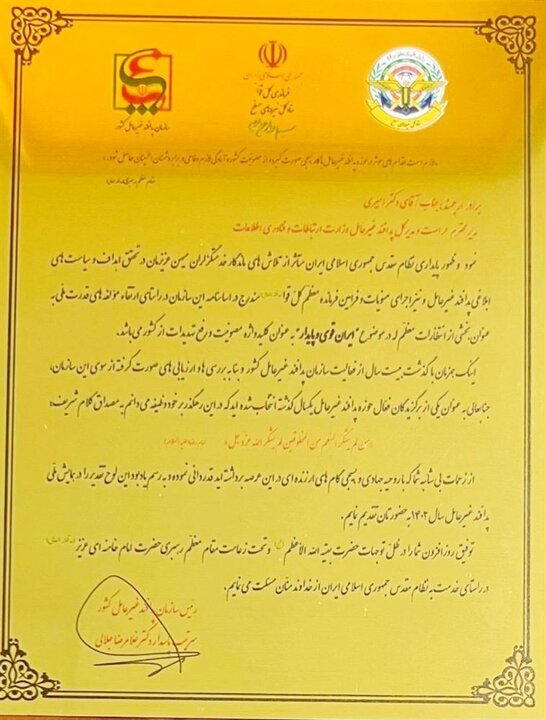 جمهوری اسلامی ایران
فرماندهی کل قوا
ستاد کل نیروهای مسلح
سازمان پدافند غیرعامل کشور
برادر ارجمند؛ جناب آقای دکتر امیری
مدیر محترم حراست و مدیر کل پدافند غیرعامل وزارت ارتباطات و فناوری اطلاعات
نمود و ظهور پایداری نظام مقدس جمهوری اسلامی ایران متأثر از تلاش های ماندگار خدمتگزاران میهن عزیزمان در تحقق اهداف و سیاست های
ابلاغی پدافند غیرعامل و نیز اجرای منویات و فرامین فرمانده معظم کل قوا مندرج در اساسنامه این سازمان در راستای ارتقاء مؤلفه های قدرت ملی به
عنوان بخشی از انتظارات معظم له در موضوع "ایران قوی و پایدار" به عنوان کلیدواژه مصونیت و رفع تهدیدات از کشور می باشد.
اینک همزمان با گذشت بیست سال از فعالیت سازمان پدافند غیرعامل کشور و بنا به بررسی ها و ارزیابی های صورت گرفته از سوی این سازمان،
جنابعالی به عنوان یکی از برگزیدگان فعال حوزه پدافند غیرعامل یکسال گذشته انتخاب شده اید که در این رهگذر بر خود وظیفه می دانم به مصداق کلام شریف؛
من لم یشکر المنعم من المخلوقین لم یشکر الله عزوجل
از زحمات بی شائبه شما که با روحیه جهادی و بسیجی گام های ارزنده ای در این عرصه برداشته اید قدردانی نموده و به رسم یادبود این لوح تقدیر را در همایش ملی
پدافند غیرعامل سال ۱۴۰۲ به حضورتان تقدیم نمایم.
توفیق روزافزون شما را در ظل توجهات حضرت بقیه الله الاعظم و تحت زعامت مقام معظم رهبری حضرت امام خامنه ای عزیز
در راستای خدمت به نظام مقدس جمهوری اسلامی ایران از خداوند منان مسئلت می نمایم.
رئیس سازمان پدافند غیرعامل کشور
سرتیپ پاسدار دکتر غلامرضا جلالی